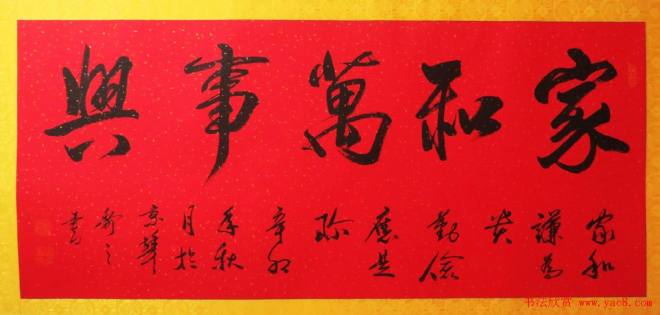 家和萬事興
家和
謙為
貴
勤儉
應是
珍
辛卯
秋
月於
京華
之
書
书法欣赏 www.yac8.com